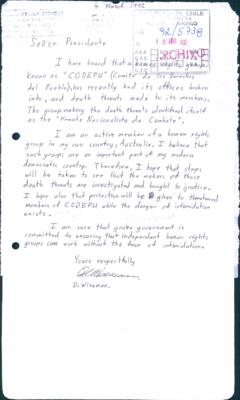 4 March 1992
CHILE
92/5938
ARCHIVO
Señor Presidente
I have heard that a human rights group
known as "CODEPU" (Comite de los Derechos
del Pueblo), has recently had its offices broken
into, and death threats made to its members.
The group making the death threats identified itself
as the "Frente Nacionalista de Combate".
I am an active member of a human rights
group in my own country, Australia. I believe that
such groups are an important part of any modern
democratic country. Therefore, I hope that steps
will be taken to see that the makers of these
death threats are investigated and bought to justice.
I hope also that protection will be given to threatened
members of CODEPU while the danger of intimidation
exists.
I am sure that youre government is
committed to ensuring that independent human rights
groups can work without the fear of intimidation.
Yours respectfully
D. Wiseman.